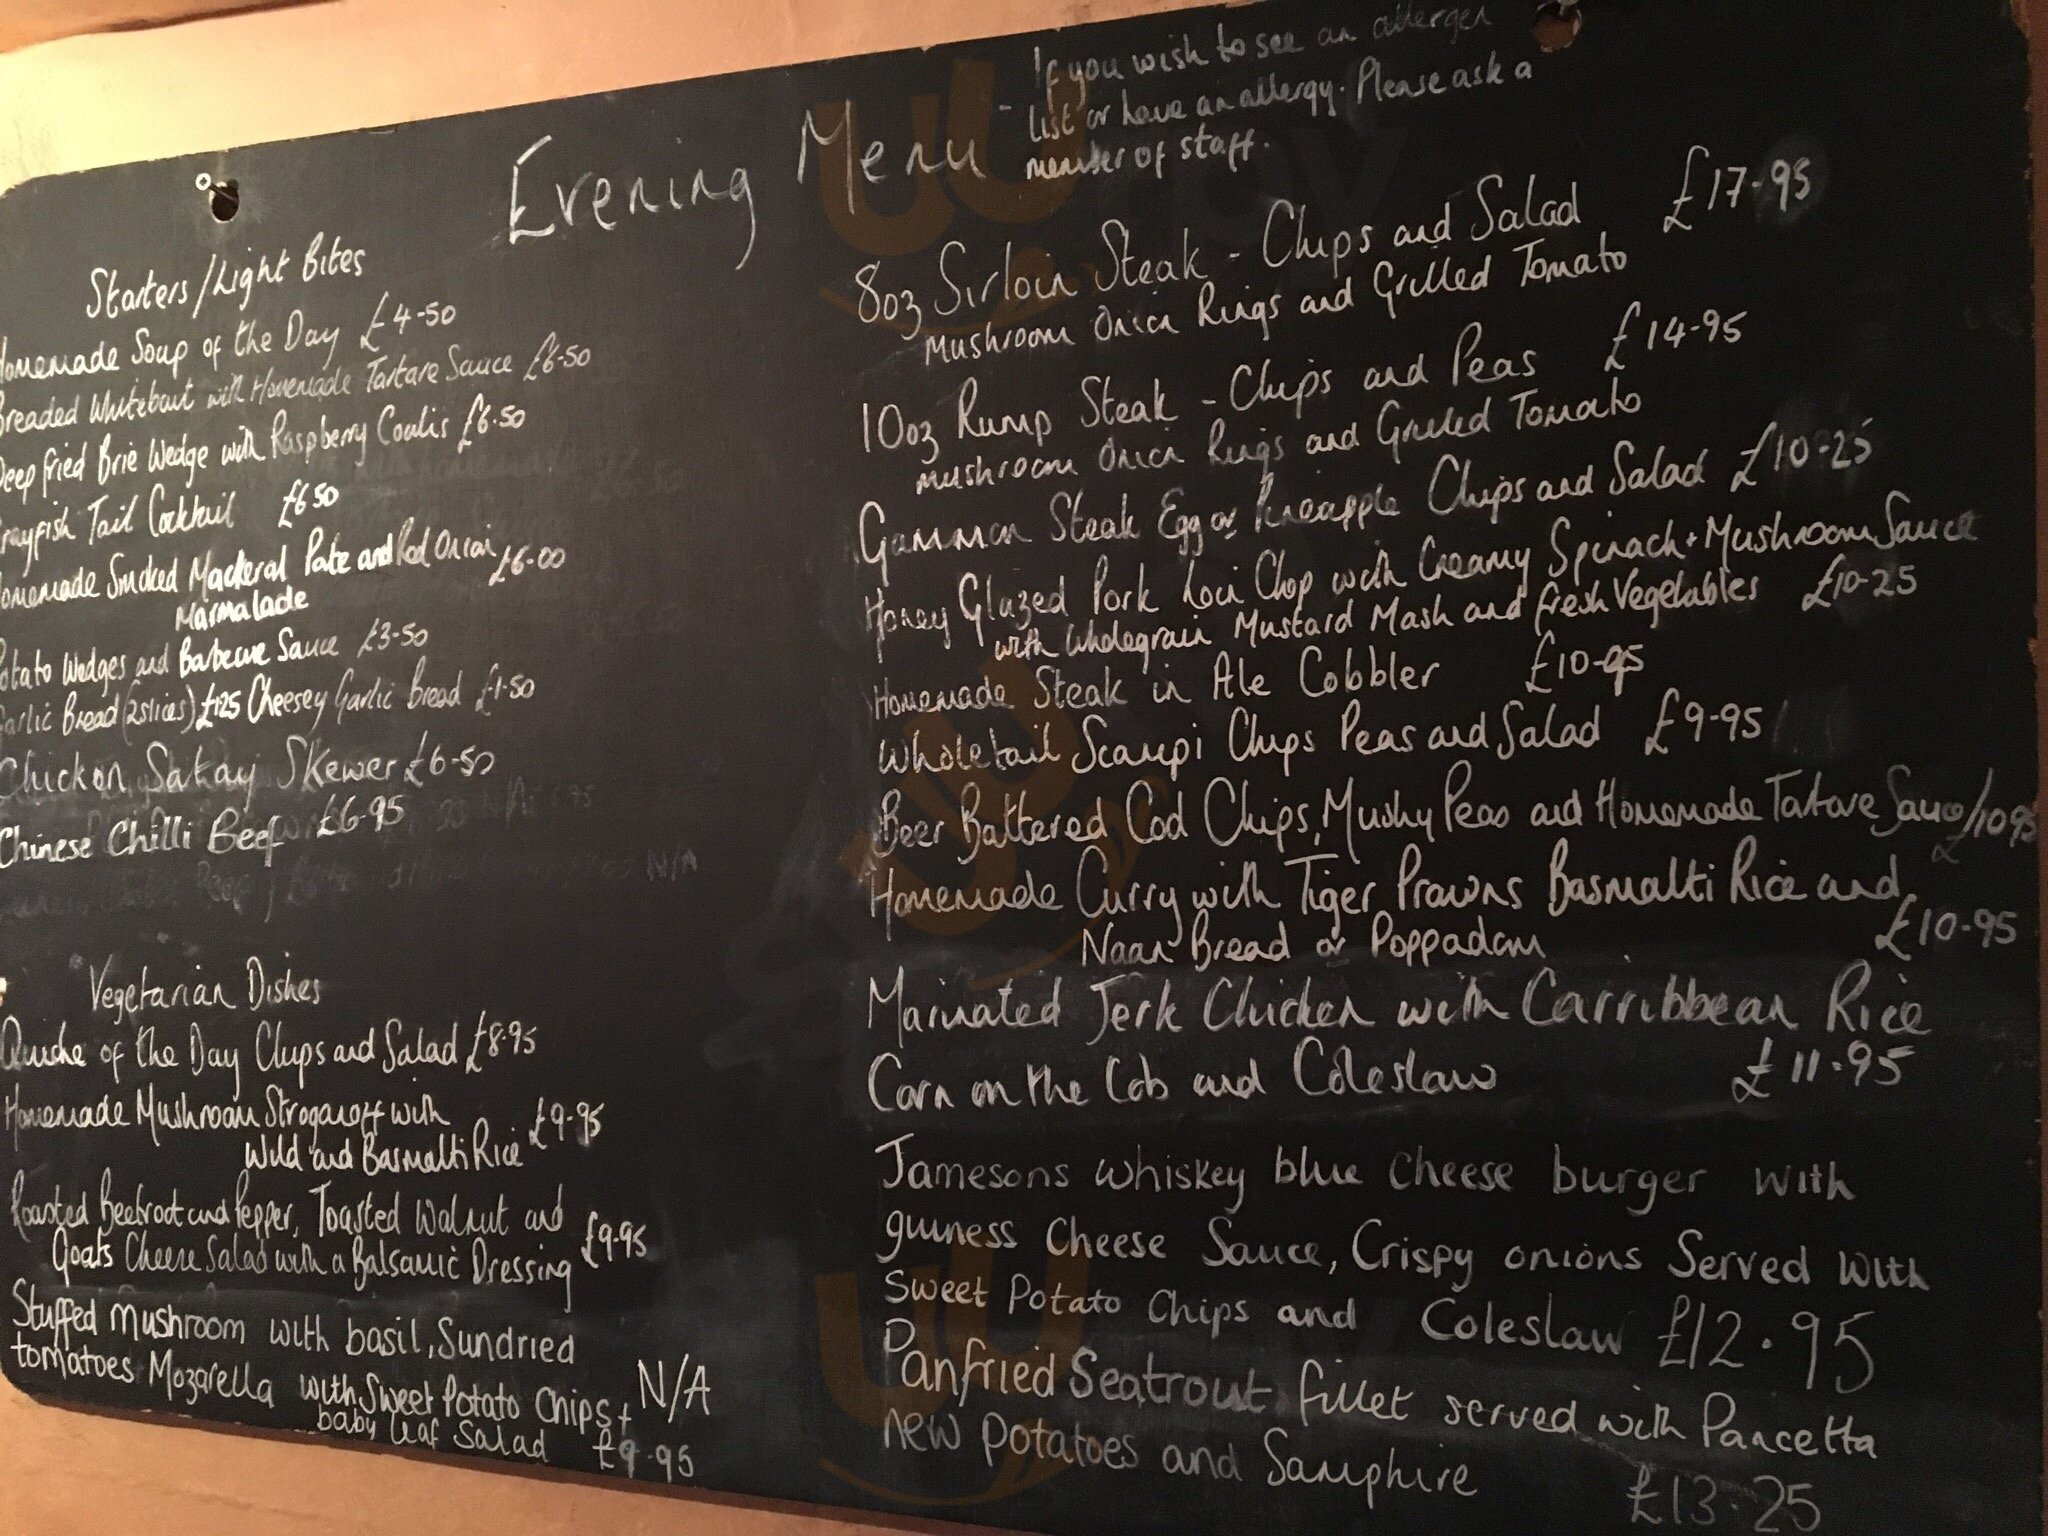 Evening Menu
- If you wish to see an allergen
list or have an allergy. Please ask a
member of staff.
Starters/Light Bites
Homemade Soup of the Day £4-50
Breaded Whitebait with Homemade Tartare Sauce £6-50
Deep fried Brie Wedge with Raspberry Coulis £6.50
Crayfish Tail Cocktail £6 50
Homemade Smoked Mackeral Pate and Red Onion £6-00
Marmalade
Potato Wedges and Barbecue Sauce £3-50
Garlic Bread (2 slices) £1.25 Cheesey Garlic Bread £1-50
Chicken Satay Skewer £6-50
Chinese Chilli Beef £6-95
N/A
Vegetarian Dishes
Quiche of the Day Chips and Salad £8-95
Homemade Mushroom Stroganoff with
Wild and Basmatti Rice £9-95
Roasted Beetroot and Pepper, Toasted Walnut and
Goats Cheese Salad with a Balsamic Dressing £9-95
Stuffed mushroom with basil, Sundried
tomatoes Mozarella with Sweet Potato Chips + N/A
baby leaf Salad £9-95
8oz Sirloin Steak - Chips and Salad £17-95
Mushroom Onion Rings and Grilled Tomato
10oz Rump Steak - Chips and Peas £14-95
Mushroom Onion Rings and Grilled Tomato
Gammon Steak Egg or Pineapple Chips and Salad £10-25
Honey Glazed Pork Loin Chop with Creamy Spinach + Mushroom Sauce
with Wholegrain Mustard Mash and Fresh Vegetables £10-25
Homemade Steak in Ale Cobbler £10-95
Wholetail Scampi Chips Peas and Salad £9-95
Beer Battered Cod Chips, Mushy Peas and Homemade Tartare Sauce/£10 95
Homemade Curry with Tiger Prawns Basmatti Rice and
Naan Bread or Poppadom £10-95
Marinated Jerk Chicken with Carribbean Rice
Corn on the Cob and Coleslaw £11-95
Jamesons whiskey blue cheese burger with
guiness Cheese Sauce, Crispy onions Served with
Sweet Potato Chips and Coleslaw £12.95
Panfried Seatrout fillet served with Pancetta
new potatoes and Samphire £13-25